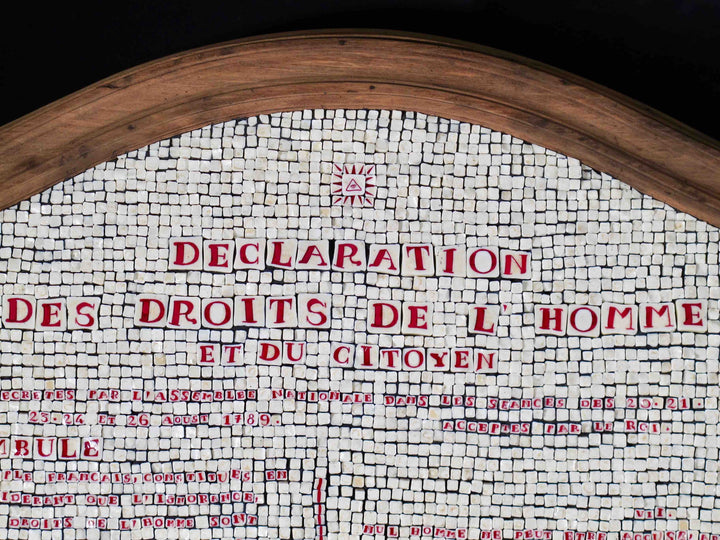 DECLARATION
DES DROITS DE L'HOMME
ET DU CITOYEN
ECRETES PAR L'ASSEMBLEE NATIONALE DANS LES SEANCES DES 20.21.
23.24 ET 26 AOUST 1789.
ACCEPTES PAR LE ROI.
MBULE
PLE FRANCAIS, CONSTITUES EN
IDERANT QUE L'IGNORENCE,
DROITS DE L'HOMME SONT
VII.
NUL HOMME NE PEUT ETRE ACCUSE, AR